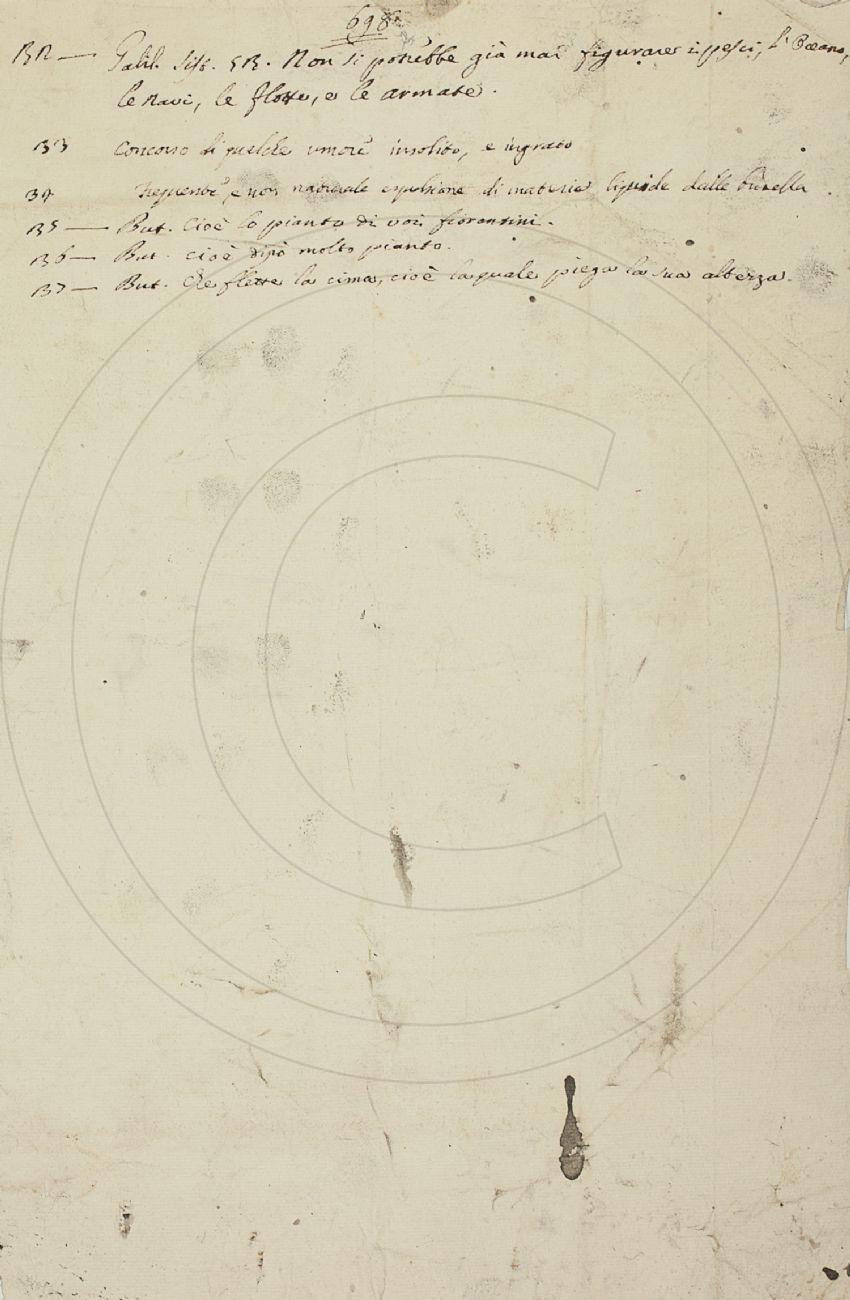 698
32 — Galil. Sist. 53. Non si potrebbe già mai figurare i pesci, l'Oceano,
le navi, le flotte, e le armate.
33 concorso di qualche umore insolito, e ingrato
34 frequente, e non naturale espulsione di materie liquide dalle budella.
35 — But. Cioè lo pianto di voi fiorentini.
36 — But. cioè dirò molto pianto.
37 — But. Che flette la cima, cioè la quale piega la sua altezza.